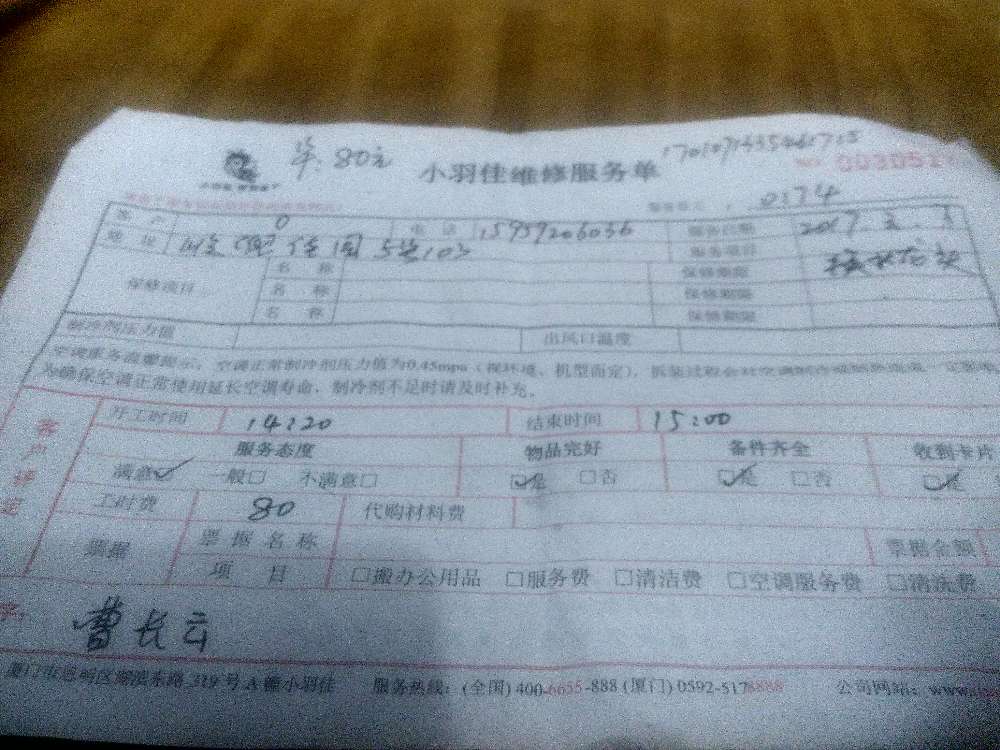 单.80元
小羽佳维修服务单
NO 0030517
0574
客户 电话 15959206036 服务日期 2017.2.3
地址 佳园5号103 服务项目
保修项目 名称 保修期限
名称 保修期限
名称 保修期限
制冷剂压力值 出风口温度
空调服务温馨提示:空调正常制冷剂压力值为0.45mpa(视环境、机型而定),拆装过程会对空调制冷
为确保空调正常使用延长空调寿命,制冷剂不足时请及时补充。
客户评定
开工时间 14:20 结束时间 15:00
服务态度 物品完好 备件齐全 收到卡片
满意☑ 一般□ 不满意□ ☑是 □否 ☑是 □否 ☑是
工时费 80 代购材料费
票据 票据名称 票据金额
项目 □搬办公用品 □服务费 □清洁费 □空调服务费 □清洗费
字: 曹长云
厦门市思明区 东路 319号A 小羽佳 服务热线:(全国)400-6655-888(厦门)0592-5178888 公司网站:www.